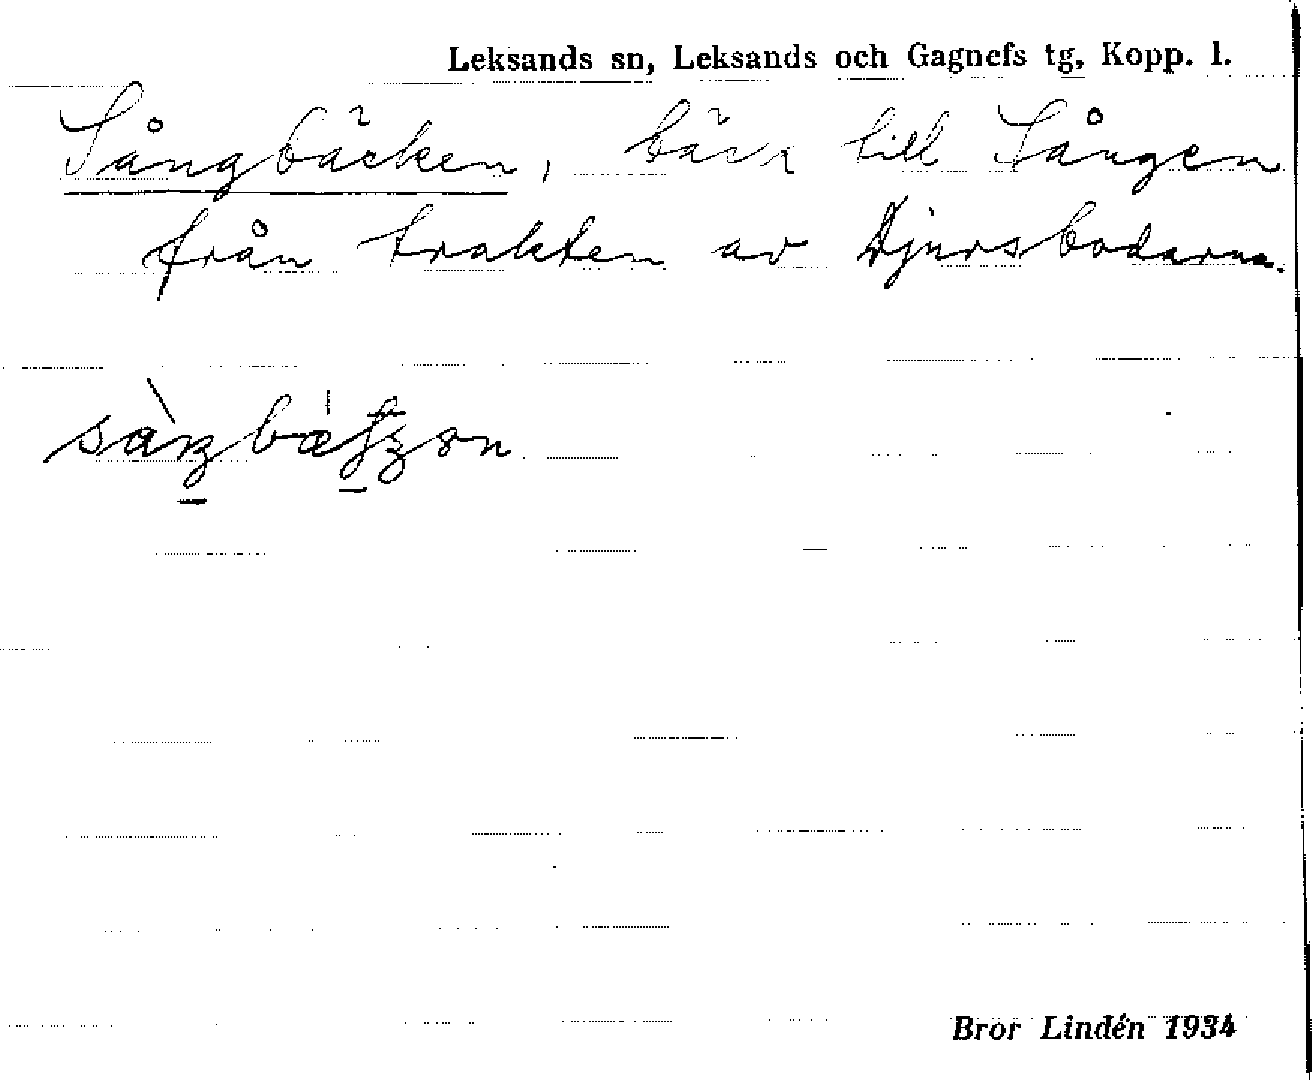 Leksands sn, Leksands och Gagnefs tg, Kopp. l.
Sångbäcken, bäck till Sången
från trakten av Djursbodarna.
Bror Lindén 1934